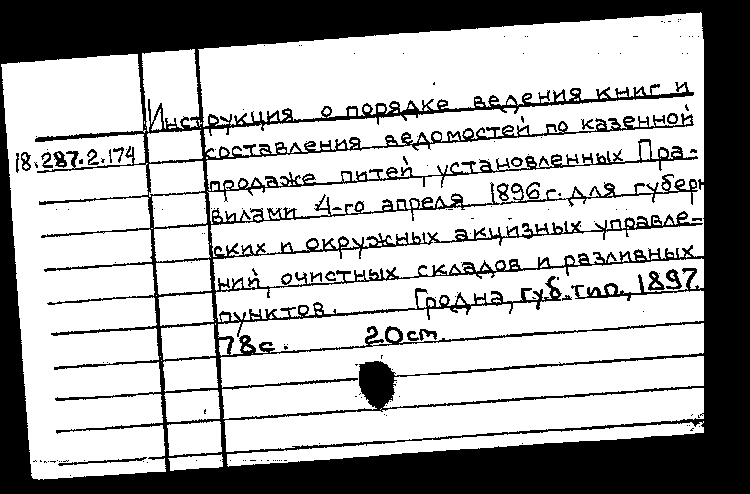 Инструкция о порядке ведения книг и
составления ведомостей по казенной
18.287.2.174
продаже питей, установленных Пра-
вилами 4-го апреля 1896 г. для губерн
ских и окружных акцизных управле-
ний, очистных складов и разливных
пунктов. Гродна, губ. тип., 1897
78 с. 20 ст.